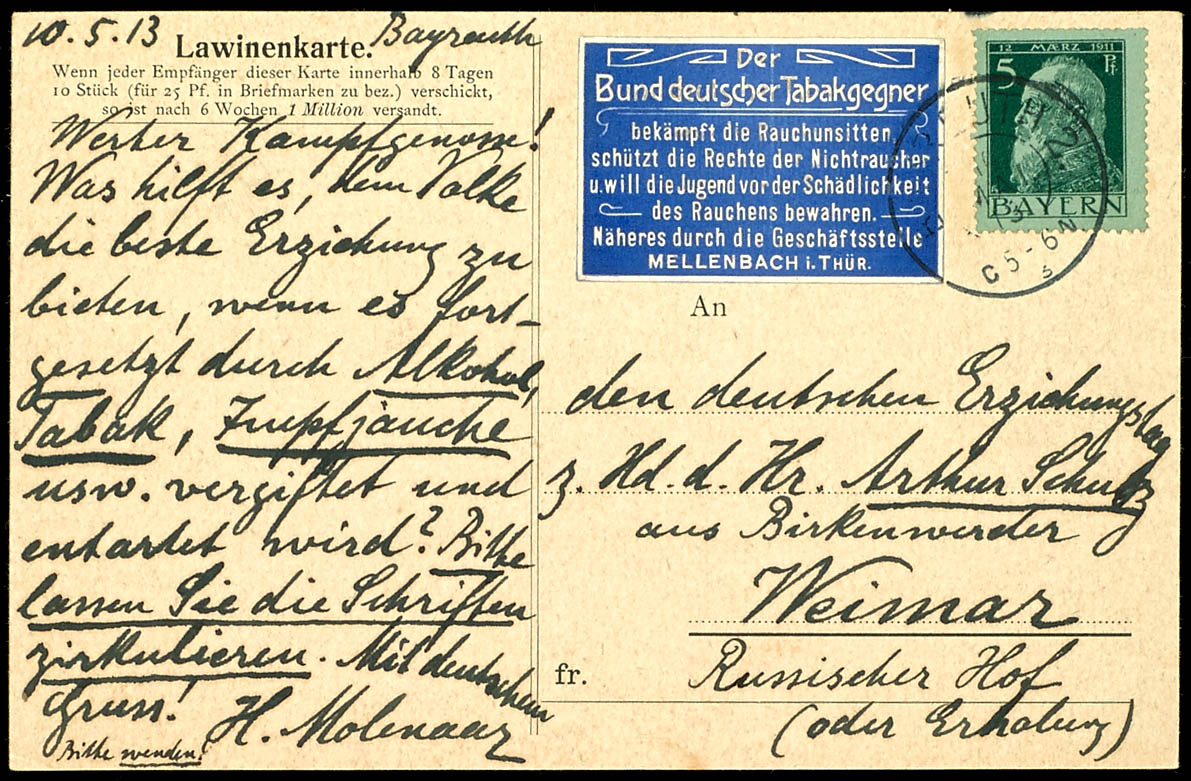 10.5.13 Bayreuth
Lawinenkarte.
Wenn jeder Empfänger dieser Karte innerhalb 8 Tagen
10 Stück (für 25 Pf. in Briefmarken zu bez.) verschickt,
so ist nach 6 Wochen 1 Million versandt.
Werter Kampfgenosse!
Was hilft es, dem Volke
die beste Erziehung zu
bieten, wenn es fort-
gesetzt durch Alkohol,
Tabak, Impfjauche
usw. vergiftet und
entartet wird? Bitte
lassen Sie die Schriften
zirkulieren. Mit deutschem
Gruss! H. Molenaar
Bitte wenden!
Der
Bund deutscher Tabakgegner
bekämpft die Rauchunsitten,
schützt die Rechte der Nichtraucher
u. will die Jugend vor der Schädlichkeit
des Rauchens bewahren.
Näheres durch die Geschäftsstelle
MELLENBACH i. THÜR.
12 MÆRZ 1911
5 Pf.
BAYERN
5-6 N
An
den deutschen Erziehungstag
z. Hd. d. Hr. Arthur Schulz
aus Birkenwerder
Weimar
fr. Russischer Hof
(oder Erholung)